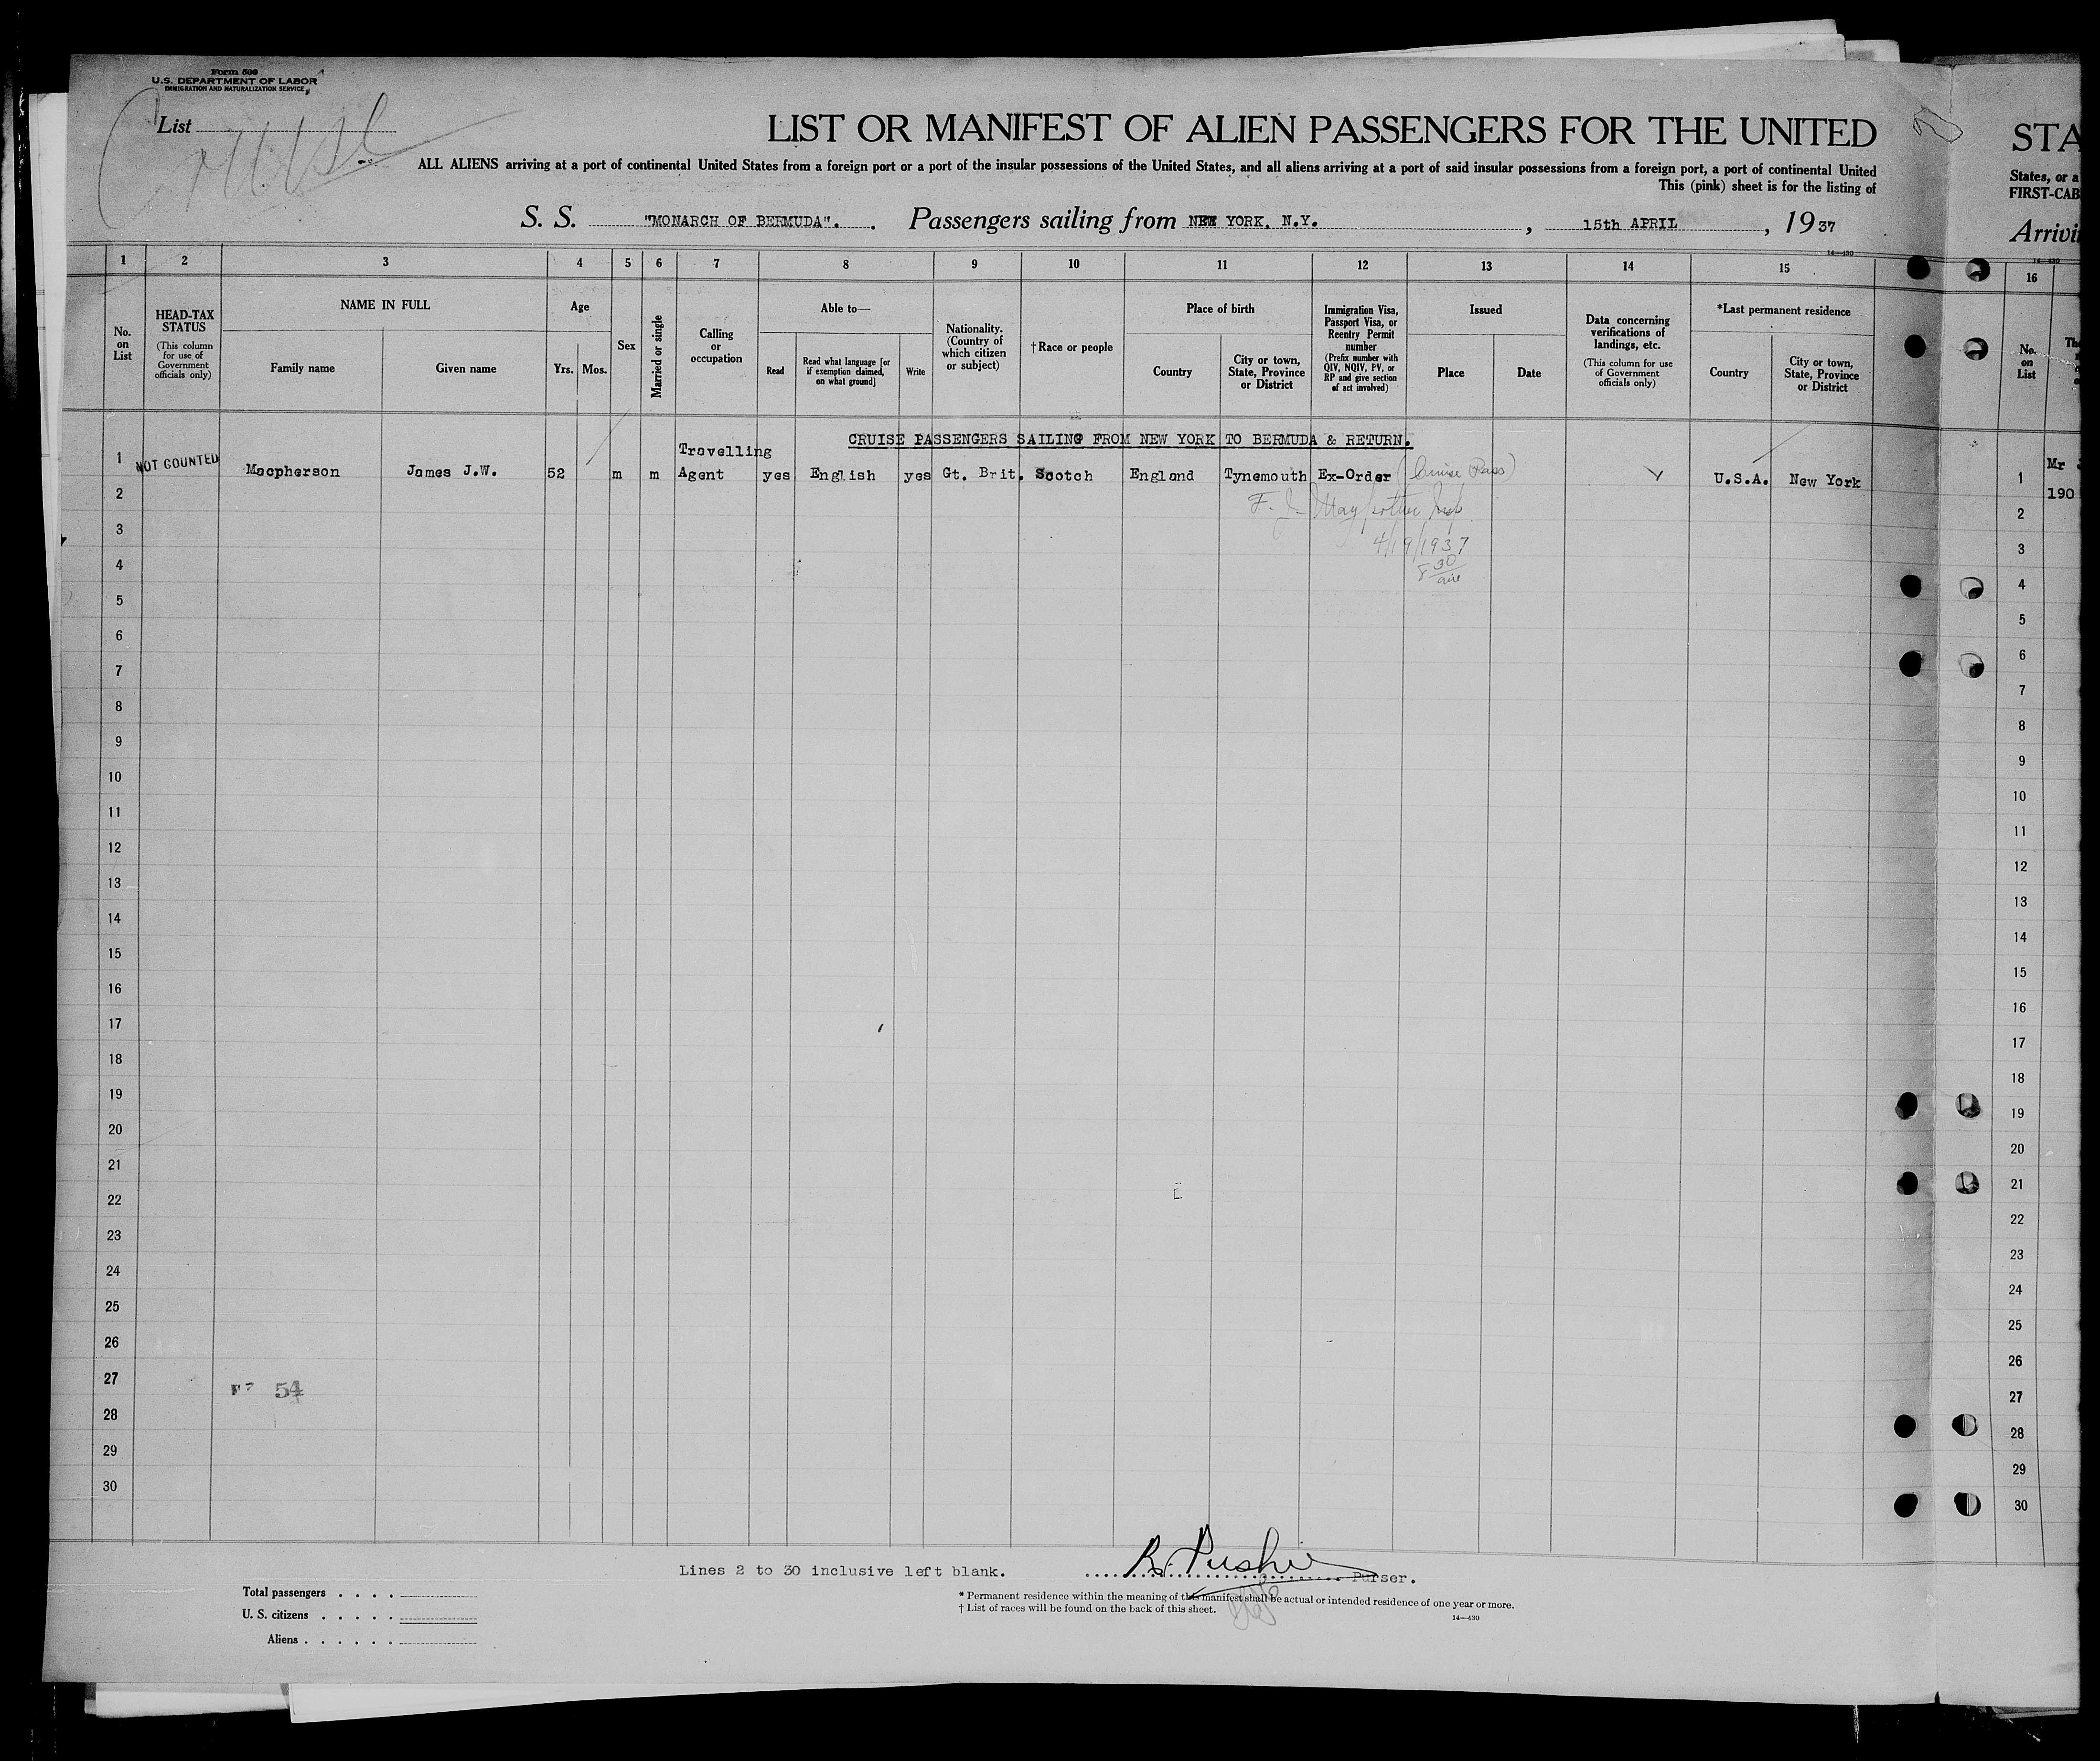 Form 500
U.S. DEPARTMENT OF LABOR
IMMIGRATION AND NATURALIZATION SERVICE
Cruise
List
LIST OR MANIFEST OF ALIEN PASSENGERS FOR THE UNITED
STA
ALL ALIENS arriving at a port of continental United States from a foreign port or a port of the insular possessions of the United States, and all aliens arriving at a port of said insular possessions from a foreign port, a port of continental United
States, or a
This (pink) sheet is for the listing of
FIRST-CAB
S. S. "MONARCH OF BERMUDA". Passengers sailing from NEW YORK, N.Y. , 15th APRIL , 1937
Arrivi
14—430
1 2 3 4 5 6 7 8 9 10 11 12 13 14 15 16
No. on List
HEAD-TAX STATUS (This column for use of Government officials only)
NAME IN FULL
Family name
Given name
Age
Yrs. Mos.
Sex
Married or single
Calling or occupation
Able to—
Read
Read what language [or if exemption claimed, on what ground]
Write
Nationality. (Country of which citizen or subject)
†Race or people
Place of birth
Country
City or town, State, Province or District
Immigration Visa, Passport Visa, or Reentry Permit number (Prefix number with QIV, NQIV, PV, or RP and give section of act involved)
Issued
Place
Date
Data concerning verifications of landings, etc. (This column for use of Government officials only)
*Last permanent residence
Country
City or town, State, Province or District
No. on List
CRUISE PASSENGERS SAILING FROM NEW YORK TO BERMUDA & RETURN.
1 NOT COUNTED Macpherson James J.W. 52 m m Travelling Agent yes English yes Gt. Brit. Scotch England Tynemouth Ex-Order (Cruise Pass) U.S.A. New York
1 Mr
190
4/19/1937
8 30
2 2
3 3
4 4
5 5
6 6
7 7
8 8
9 9
10 10
11 11
12 12
13 13
14 14
15 15
16 16
17 17
18 18
19 19
20 20
21 21
22 22
23 23
24 24
25 25
26 26
27 27
54
28 28
29 29
30 30
Lines 2 to 30 inclusive left blank.
Purser.
Total passengers
U. S. citizens
Aliens
* Permanent residence within the meaning of this manifest shall be actual or intended residence of one year or more.
† List of races will be found on the back of this sheet.
14—430